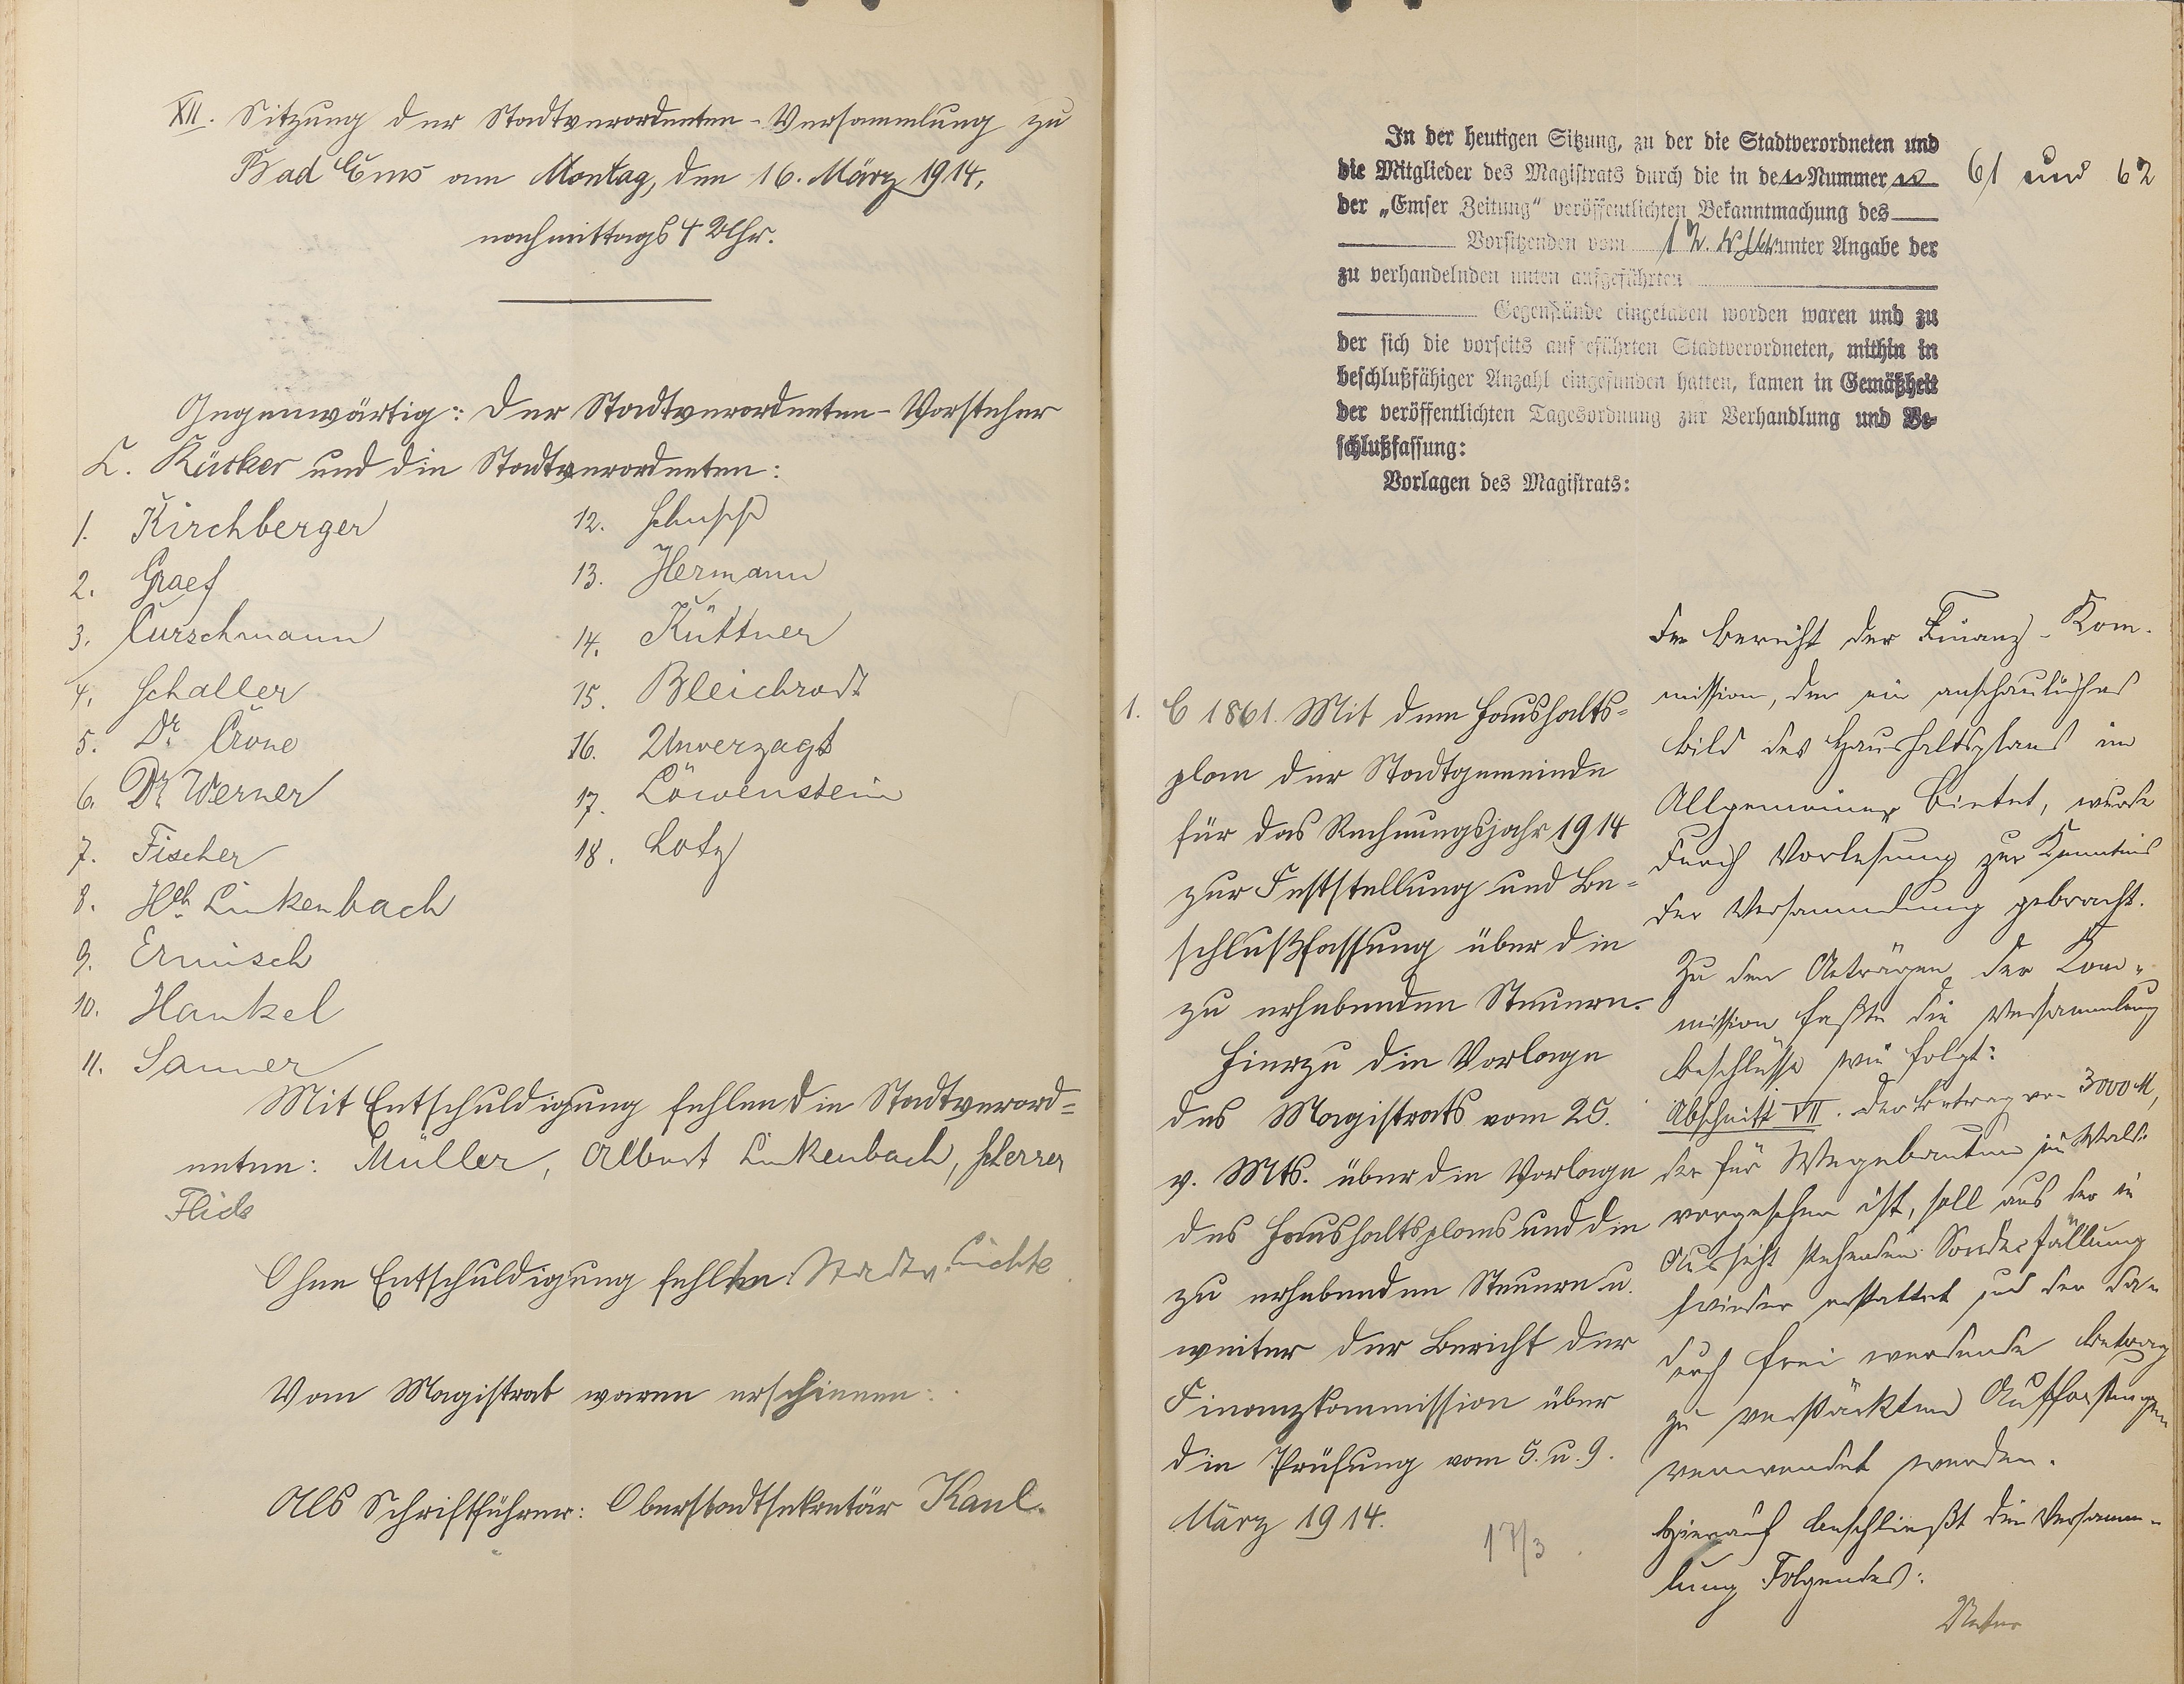 XII. Sitzung der Stadtverordneten-Versammlung zu
Bad Ems am Montag, den 16. März 1914,
nachmittags 4 Uhr.
Gegenwärtig: Der Stadtverordneten-Vorsteher
C. Rücker und die Stadtverordneten:
1. Kirchberger
2. Graef
3. Curschmann
4. Schaller
5. Dr. Crone
6. Dr. Werner
7. Fischer
8. Hch. Linkenbach
9. Ermisch
10. Hankel
11. Sauner
12. Schupp
13. Hermann
14. Küttner
15. Bleichrodt
16. Unverzagt
17. Löwenstein
18. Lotz
Mit Entschuldigung fehlen die Stadtverord=
neten: Müller, Albert Linkenbach, Scherrer
Flick
Ohne Entschuldigung fehlten: Stadtv. Lichte
Vom Magistrat waren erschienen:
Als Schriftführer: Oberstadtsekretär Kaul.
In der heutigen Sitzung, zu der die Stadtverordneten und
die Mitglieder des Magistrats durch die in den Nummern 61 und 62
der „Emser Zeitung" veröffentlichten Bekanntmachung des
Vorsitzenden vom 12. unter Angabe der
zu verhandelnden unten aufgeführten
Gegenstände eingeladen worden waren und zu
der sich die vorseits aufgeführten Stadtverordneten, mithin in
beschlußfähiger Anzahl eingefunden hatten, kamen in Gemäßheit
der veröffentlichten Tagesordnung zur Verhandlung und Be-
schlußfassung:
Vorlagen des Magistrats:
1. C 1861. Mit dem Haushalts=
plan der Stadtgemeinde
für das Rechnungsjahr 1914
zur Feststellung und Be=
schlußfassung über die
zu erhebenden Steuern.
Hierzu die Vorlage
des Magistrats vom 25.
v. Mts. über die Vorlage
des Haushaltsplans und die
zu erhebenden Steuern u.
weiter der Bericht der
Finanzkommission über
die Prüfung vom 5. u. 9.
März 1914.
17/3
Der Bericht der Finanz-Kom-
mission, der ein anschauliches
Bild des Haushaltsplans im
Allgemeinen bietet, wurde
durch Vorlesung zur Kenntnis
der Versammlung gebracht.
Zu den Anträgen der Kom-
mission faßte die Versammlung
Beschlüsse wie folgt:
Abschnitt VII. Der Betrag von 3000 M,
der für Wegebauten im Wald
vorgesehen ist, soll aus der in
Aussicht stehenden Sonderfällung
wieder erstattet und der da-
durch frei werdende Betrag
zu verstärkten Aufforstungen
verwendet werden.
Hierauf beschließt die Versamm-
lung Folgendes: